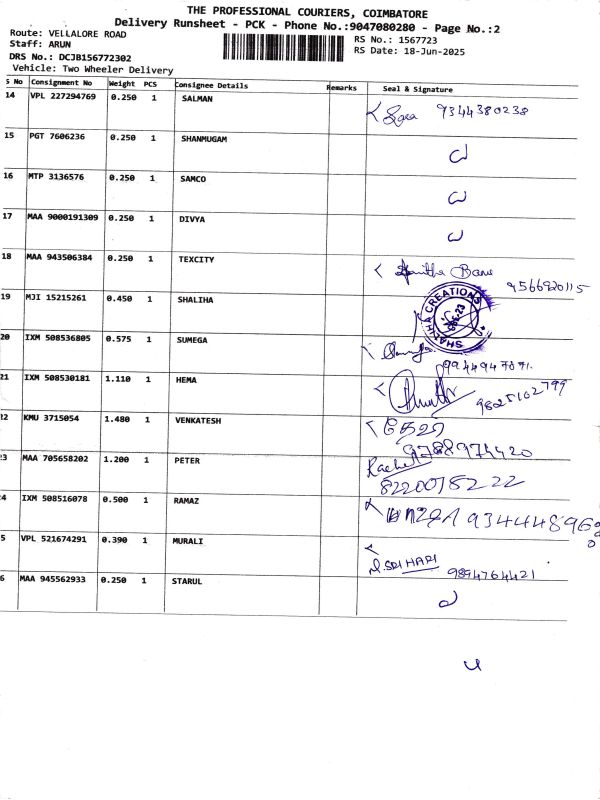 THE PROFESSIONAL COURIERS, COIMBATORE
Delivery Runsheet - PCK - Phone No.:9047080280 - Page No.:2
Route: VELLALORE ROAD
Staff: ARUN
DRS No.: DCJB156772302
Vehicle: Two Wheeler Delivery
RS No.: 1567723
RS Date: 18-Jun-2025
S No Consignment No Weight PCS Consignee Details Remarks Seal & Signature
14 VPL 227294769 0.250 1 SALMAN 9344380238
15 PGT 7606236 0.250 1 SHANMUGAM
16 MTP 3136576 0.250 1 SAMCO
17 MAA 9000191309 0.250 1 DIVYA
18 MAA 943506384 0.250 1 TEXCITY Banu 9566920115
19 MJI 15215261 0.450 1 SHALIHA SHALIHA CREATIONS
20 IXM 508536805 0.575 1 SUMEGA
21 IXM 508530181 1.110 1 HEMA
22 KMU 3715054 1.480 1 VENKATESH 9788974420
23 MAA 705658202 1.200 1 PETER Rachel
24 IXM 508516078 0.500 1 RAMAZ
5 VPL 521674291 0.390 1 MURALI SRI HARI 9894764421
6 MAA 945562933 0.250 1 STARUL